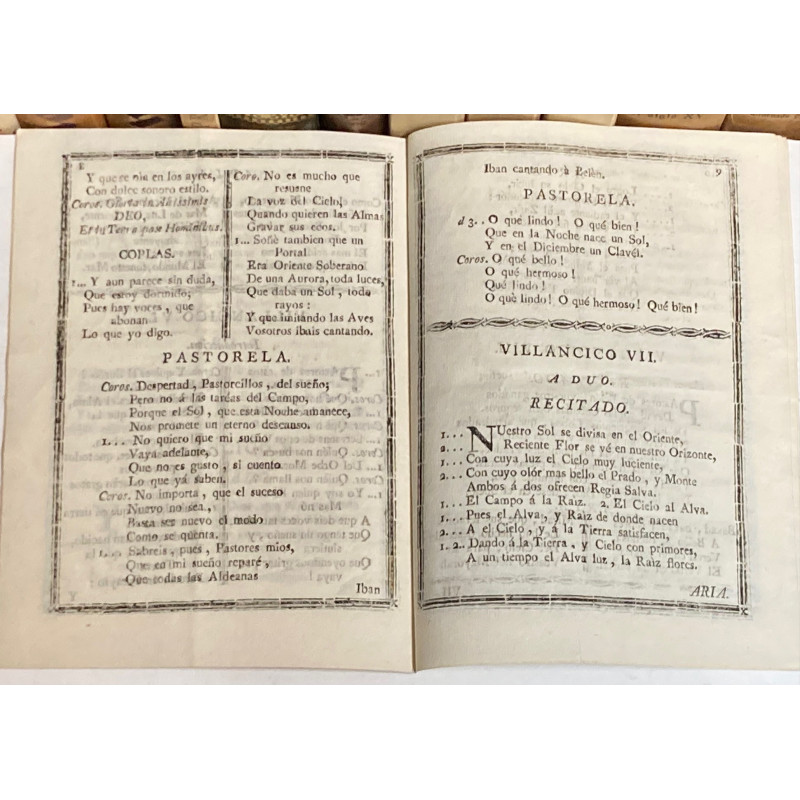 8
Y que re nia en los ayres,
Con dulce sonoro estilo.
Coros. Gloria in Altissimis
DEO,
Et in Terra pax Hominibus.
COPLAS.
1... Y aun parece sin duda,
Que estoy dormido;
Pues hay voces, que
abonan
Lo que yo digo.
Coro. No es mucho que
resuene
La voz del Cielo,
Quando quieren las Almas
Gravar sus ecos.
1... Soñé tambien que un
Portal
Era Oriente Soberano
De una Aurora, toda luces,
Que daba un Sol, todo
rayos:
Y que imitando las Aves
Vosotros íbais cantando.
PASTORELA.
Coros. Despertad, Pastorcillos, del sueño;
Pero no á las taréas del Campo,
Porque el Sol, que esta Noche amanece,
Nos promete un eterno descanso.
1... No quiero que mi sueño
Vaya adelante,
Que no es gusto, si cuento
Lo que yá saben.
Coros. No importa, que el suceso
Nuevo no sea,
Basta ser nuevo el modo
Como se qüenta.
1... Sabreis, pues, Pastores mios,
Que en mi sueño reparé,
Que todas las Aldeanas
Iban
9
Iban cantando à Belèn.
PASTORELA.
á 3.. O qué lindo! O qué bien!
Que en la Noche nace un Sol,
Y en el Diciembre un Clavél.
Coros. O qué bello!
O qué hermoso!
Qué lindo!
O què lindo! O qué hermoso! Qué bien!
VILLANCICO VII.
A DUO.
RECITADO.
1... NUestro Sol se divisa en el Oriente,
2... Reciente Flor se vé en nuestro Orizonte,
1... Con cuya luz el Cielo muy luciente,
2... Con cuyo olór mas bello el Prado, y Monte
Ambos á dos ofrecen Regia Salva.
1... El Campo á la Raiz. 2. El Cielo al Alva.
1... Pues el Alva, y Raiz de donde nacen
2... A el Cielo, y á la Tierra satisfacen,
1. 2.. Dando á la Tierra, y Cielo con primores,
A un tiempo el Alva luz, la Raiz flores.
ARIA.